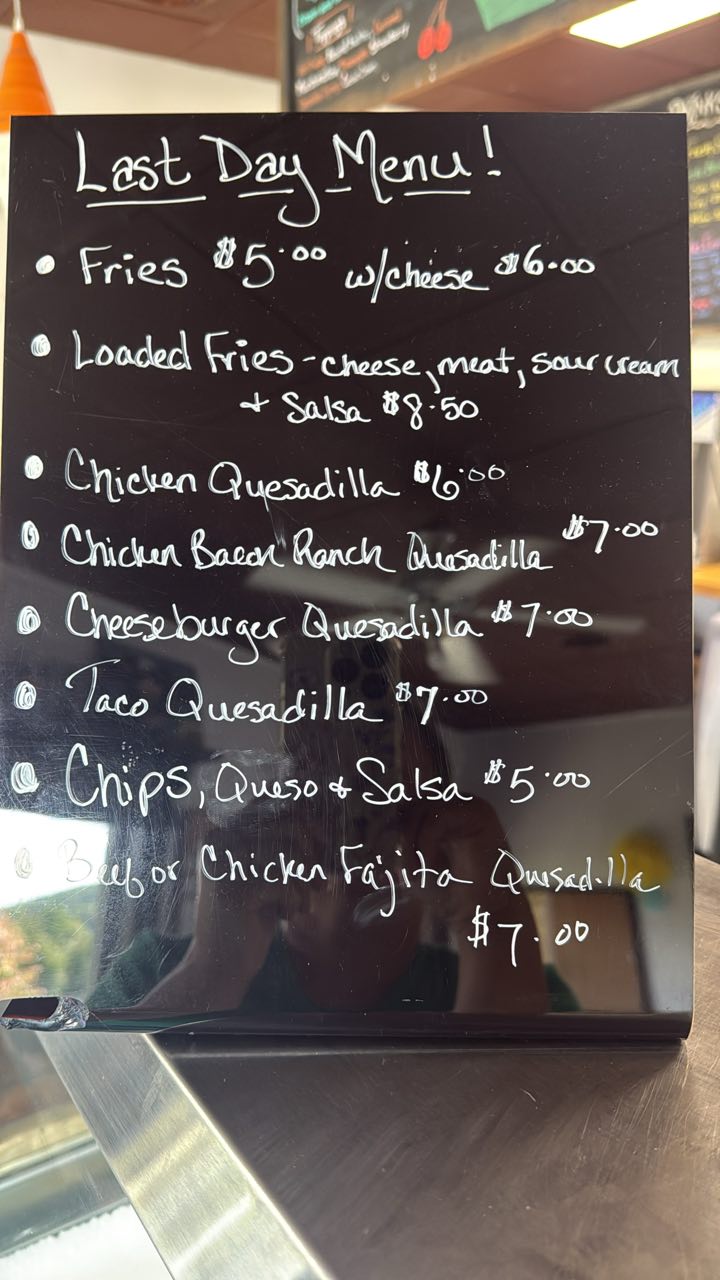 Last Day Menu!
• Fries $5.00 w/cheese $6.00
• Loaded Fries - cheese, meat, sour cream
+ Salsa $8.50
• Chicken Quesadilla $6.00
• Chicken Bacon Ranch Quesadilla $7.00
• Cheeseburger Quesadilla $7.00
• Taco Quesadilla $7.00
• Chips, Queso + Salsa $5.00
• Beef or Chicken Fajita Quesadilla
$7.00